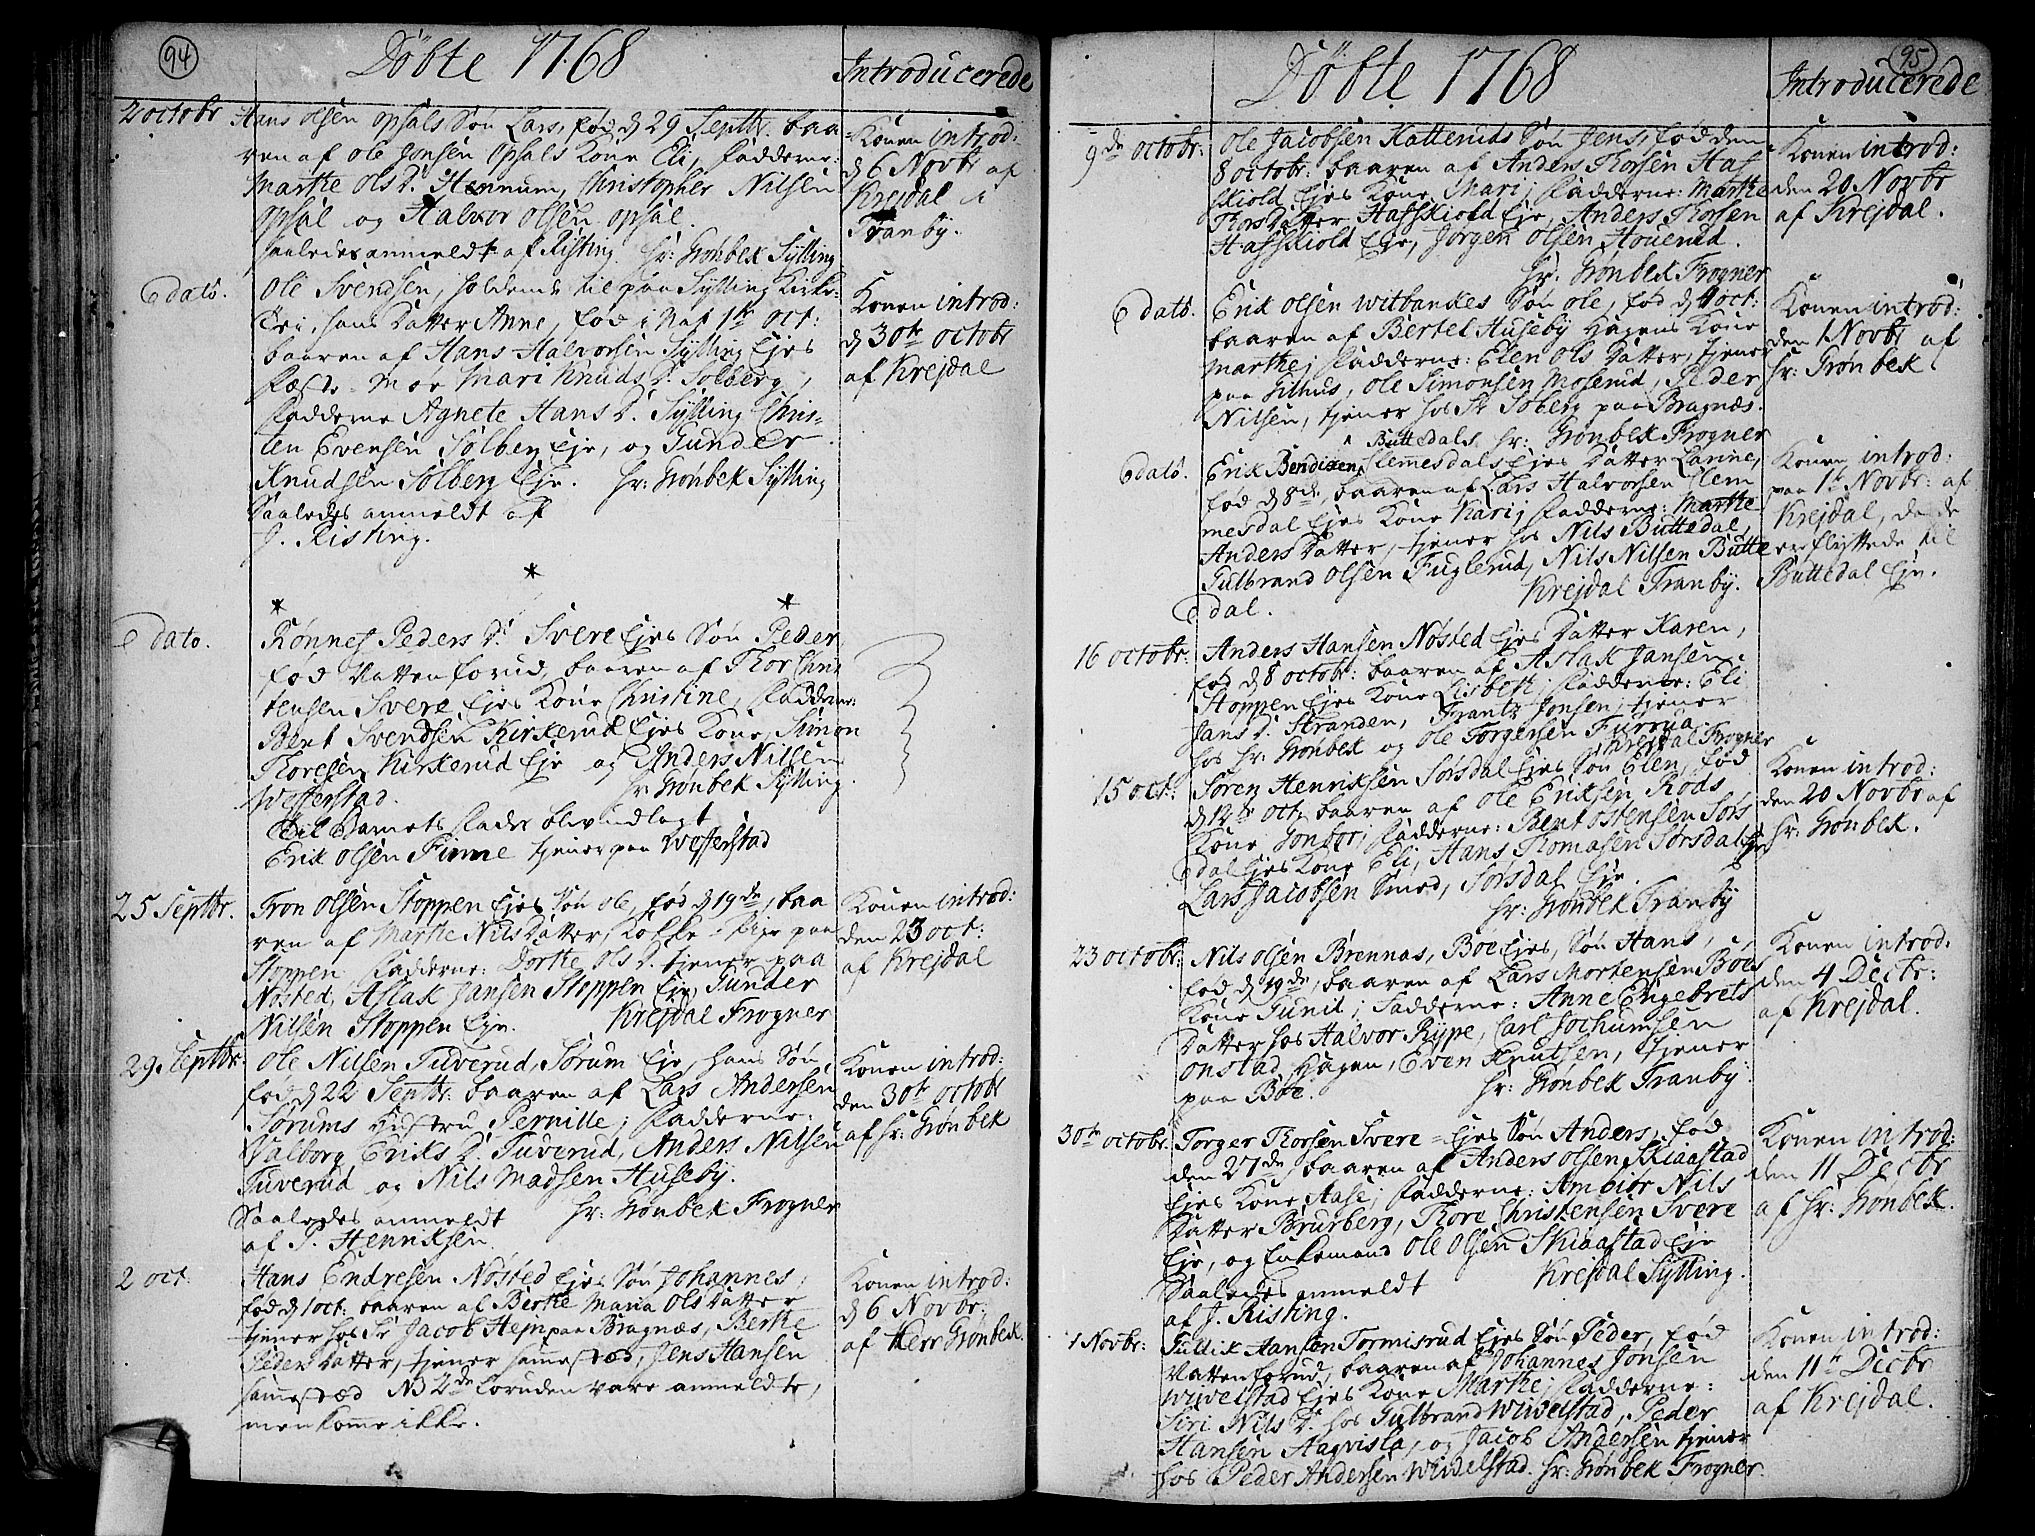 94
Döbte 1768
Introducerede
2 octobr
Hans olsen opsals Søn Lars, fød d 29 Septbr. baa
ren af ole Jonsen opsals Kone Eli, fadderne:
Marthe ols D. Hennum, Christopher Nilsen
opsal og Halvor olsen opsal.
saaledes anmeldt af Risting. Hr: Grönbek Sylling
Konen introd:
d 6 Novbr af
Krejdal i
Tranby.
E dato.
Ole Svendsen, holdende til paa Sylling Kirke-
Eri, hans Datter Anne, fød i Nat 1te Oct:
baaren af Hans Halvorsen Sylling Ejes
Fæste-Møe Mari Knuds D. Solberg,
fadderne Agnete Hans D. Sylling Chris-
ten Evensen Solberg Eje, og Gunder
Knudsen Solberg Eje. Hr: Grönbek Sylling
Saaledes anmeldt af
J. Risting.
Konen introd:
d 30te octobr
af Krejdal
*
* *
E dato.
Rönnef Peders D. Svere Ejes Søn Peder,
fød Natten forud, baaren af Thor Chris
tensen Svere Ejes Kone Christine, fadderne:
Bent Svendsen Kirkerud Ejes Kone, Simon
Thoresen Kirkerud Eje og Anders Nilsen
Wefferstad. Hr Grönbek Sylling.
Til Barnets fader blev udlagt
Erik olsen Finne tjener paa Wefferstad
25 Septbr.
Tron olsen Stoppen Ejes Søn ole, fød d 19de, baa
ren af Marthe Nils Datter, Kokke-Pige paa
Stoppen, fadderne: Dorthe ols D. tjener paa
Nøsted, Aslak Jansen Stoppen Eje, Gunder
Nilsen Stoppen Eje. Krejdal Frogner
Konen introd:
den 23 oct:
af Krejdal
29. Septbr.
Ole Nilsen Tuverud, Sörum Eje, hans Søn
fød d 22 Septbr. baaren af Lars Andersen
Sörums Hustru Pernille; fadderne:
Valborg Eriks D. Tuverud, Anders Nilsen
Tuverud og Nils Madsen Huseby.
Saaledes anmeldt Hr: Grönbek Frogner
af P. Henriksen.
Konen introd:
den 30te octobr
af Hr: Grönbek
2 oct.
Hans Endresen Nøsted Ejes Søn Johannes,
fød d 1 oct: baaren af Berthe Maria Ols Datter
tjener hos Sr Jacob Hejn paa Bragnæs, Berthe
Peders Datter, tjener sammested, Jens Hansen
sammested NB 2de foruden vare anmeldte,
men komme ikke.
Konen introd:
d 6 Novbr:
af Herr Grönbek.
95
Döbte 1768
Introducerede
9de octobr:
Ole Jacobsen Katteruds Søn Jens, fød den
8 octobr: baaren af Anders Thorsen Haf
skiold Ejes Kone Mari; fadderne: Marthe
Thors Datter Hafskiold Eje, Anders Thorsen
Hafskiold Eje, Jørgen olsen Houerud.
Hr. Grönbek Frogner
Konen introd:
den 20 Novbr
af Krejdal.
E dato.
Erik olsen Witbankes Søn ole, fød d 1 oct:
baaren af Bertel Huseby Hagens Kone
Marthe; fadderne: Elen ols Datter, tjener
paa Gilhus, ole Simonsen Moserud, Peder
Nilsen, tjener hos Sr Soberg paa Bragnæs.
Hr: Grönbek Frogner
Konen introd:
den 1 Novbr af
Hr: Grönbek
E dato.
^ Buttedals
Erik Bendixen Slemmesdals Ejes Datter Larine,
fød d 8de, baaren af Lars Halvorsen Slem
mesdal Ejes Kone Kari; fadderne: Marthe
Anders Datter, tjener hos Nils Buttedal,
Gulbrand olsen Fuglerud, Nils Nilsen Butte
dal. Krejdal Tranby.
Konen introd:
paa 1te Novbr: af
Krejdal, da de
er flyttede til
Buttedal Eje.
16 octobr:
Anders Hansen Nøsted Ejes Datter Karen,
fød d 8 octobr: baaren af Aslak Jansen
Stoppen Ejes Kone Lisbeth; fadderne: Eli
Jans D. Stranden, Frantz Jonsen, tjener
hos Hr: Grönbek og Ole Torgersen Fuurua.
Krejdal Frogner
15 oct:
Søren Henriksen Sørsdal Ejes Søn Elen, fød
d 12te oct; baaren af Ole Eriksen Røds
Kone Gonbor; fadderne: Bent ostensen Sørs
dal Ejes Kone Eli, Hans Thomasen Sørsdal Eje
Lars Jacobsen Smed, Sørsdal Eje.
Hr: Grönbek Tranby
Konen introd:
den 20 Novbr af
Hr: Grönbek.
23 octobr:
Nils olsen Brennas, Böe Ejes, Søn Hans,
fød d 19de, baaren af Lars Mortensen Böes
Kone Gunil; Fadderne: Anne Engebrets
Datter hos Halvor Rype, Carl Jochumsen
onstad Hagen, Even Knutsen, tjener
paa Böe. Hr: Grönbek Tranby.
Konen introd:
den 4 Decbr:
af Krejdal.
30te octobr.
Torger Thorsen Svere-Ejes Søn Anders, fød
den 27de, baaren af Anders olsen Skiaastad
Ejes Kone Aase; fadderne: Ambiør Nils
Datter Brurberg, Thore Christensen Svere
Eje, og Enkemand Ole Olsen Skiaastad Eje
Saaledes anmeldt Krejdal Sylling.
af J. Risting.
Konen introd:
den 11 Decbr
af Hr: Grönbek.
1 Novbr:
Gullik Hansen Tormisrud Ejes Søn Peder, fød
Natten forud, baaren af Johannes Jonsen
Wivelstad Ejes Kone Marthe; fadderne:
Siri Nils D. hos Gulbrand Wivelstad, Peder
Hansen Aaqvisla, og Jacob Andersen tjener
hos Peder Andersen Wivelstad. Hr: Grönbek Frogner.
Konen introd:
den 11te Decbr
af Krejdal.